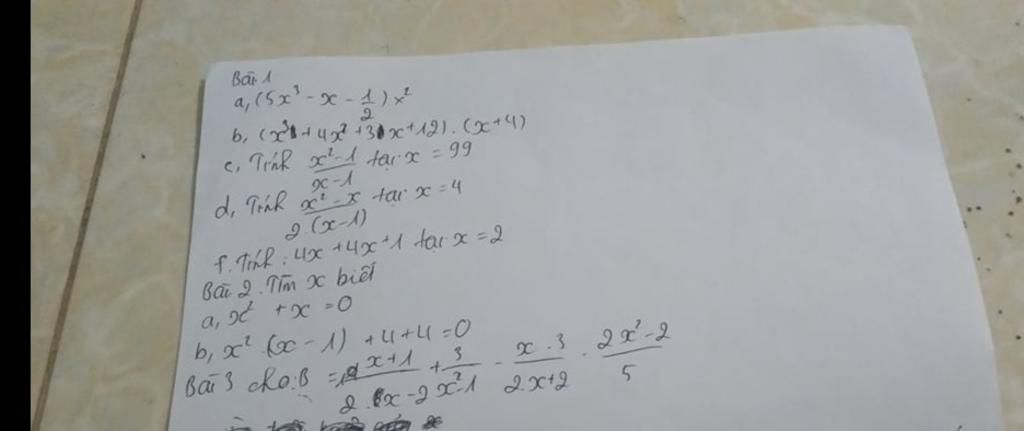 Bài 1
a, (5x³ - x - 1/2) x²
b, (x³ + 4x² + 3x + 12) . (x + 4)
c, Tính (x² - 1)/(x - 1) tại x = 99
d, Tính (x² - x)/(2.(x - 1)) tại x = 4
f. Tính : 4x + 4x + 1 tại x = 2
Bài 2 . Tìm x biết
a, x² + x = 0
b, x² . (x - 1) + 4 + 4 = 0
Bài 3 cho : B = (x + 1)/(2.x - 2) + 3/(x² - 1) - (x . 3)/(2x + 2) . (2x² - 2)/5